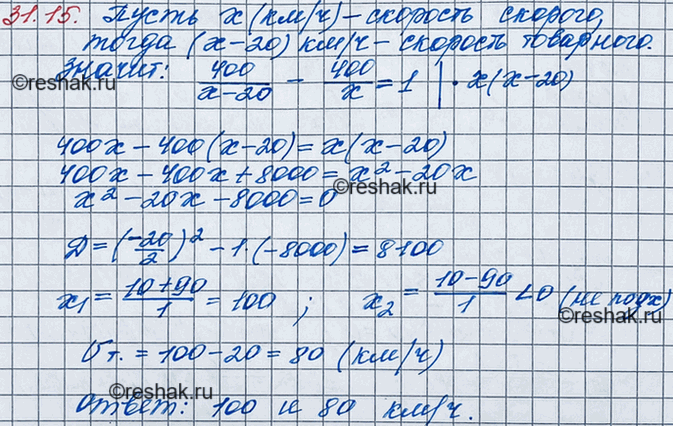 31.15. Пусть x (км/ч) – скорость скорого,
тогда (x–20) км/ч – скорость товарного.
Значит: 400/(x–20) – 400/x = 1 | · x(x–20)
©reshak.ru
©reshak.ru
400x – 400(x–20) = x(x–20)
400x – 400x + 8000 = x² – 20x
©reshak.ru
x² – 20x – 8000 = 0
D = (–20/2)² – 1·(–8000) = 8100
x₁ = (10+90)/1 = 100 ; x₂ = (10–90)/1 < 0 (не подх)
©reshak.ru
Vт. = 100 – 20 = 80 (км/ч)
©reshak.ru
Ответ: 100 и 80 км/ч.